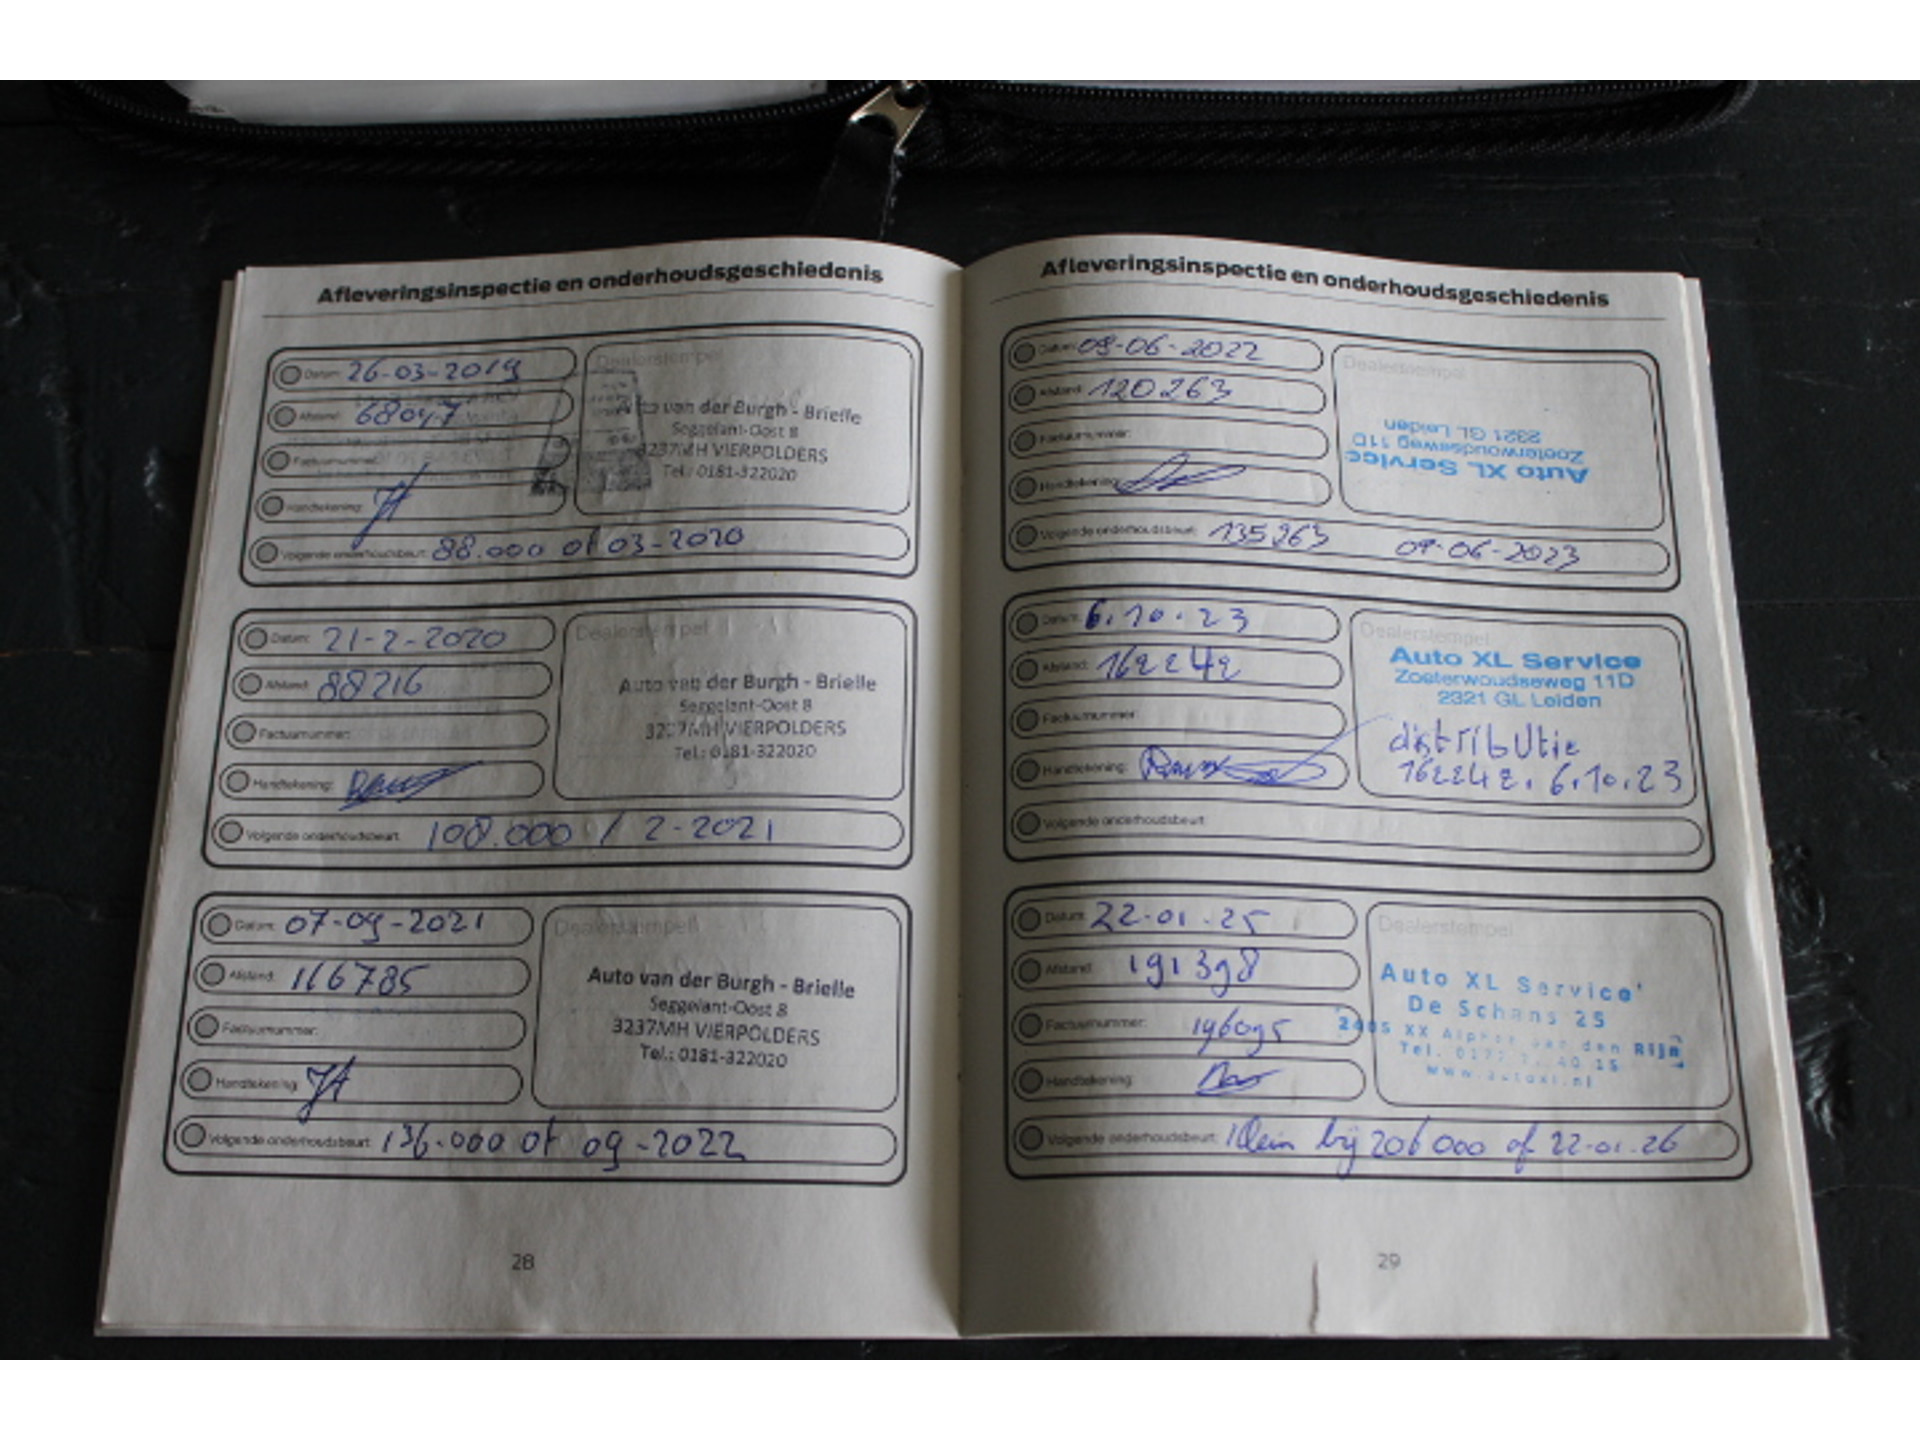 Afleveringsinspectie en onderhoudsgeschiedenis
Datum: 26-03-2019
Afstand: 68047
Factuurnummer:
Handtekening:
Volgende onderhoudsbeurt: 88.000 of 03-2020
Dealerstempel
Auto van der Burgh - Brielle
Seggelant-Oost 8
3237MH VIERPOLDERS
Tel.: 0181-322020
Datum: 21-2-2020
Afstand: 88216
Factuurnummer:
Handtekening:
Volgende onderhoudsbeurt: 108.000 / 2-2021
Dealerstempel
Auto van der Burgh - Brielle
Seggelant-Oost 8
3237MH VIERPOLDERS
Tel.: 0181-322020
Datum: 07-09-2021
Afstand: 116785
Factuurnummer:
Handtekening:
Volgende onderhoudsbeurt: 136.000 of 09-2022
Dealerstempel
Auto van der Burgh - Brielle
Seggelant-Oost 8
3237MH VIERPOLDERS
Tel.: 0181-322020
28
Afleveringsinspectie en onderhoudsgeschiedenis
Datum: 09-06-2022
Afstand: 120263
Factuurnummer:
Handtekening:
Volgende onderhoudsbeurt: 135263 09-06-2023
Dealerstempel
Auto XL Service
Zoeterwoudseweg 11D
2321 GL Leiden
Datum: 6.10.23
Afstand: 162242
Factuurnummer:
Handtekening:
Volgende onderhoudsbeurt:
Dealerstempel
Auto XL Service
Zoeterwoudseweg 11D
2321 GL Leiden
distributie
162242. 6.10.23
Datum: 22-01-25
Afstand: 191398
Factuurnummer: 196095
Handtekening:
Volgende onderhoudsbeurt: Klein bij 206000 of 22-01-26
Dealerstempel
Auto XL Service
De Schans 25
XX Alphen aan den Rijn
Tel.
www.autoxl.nl
29